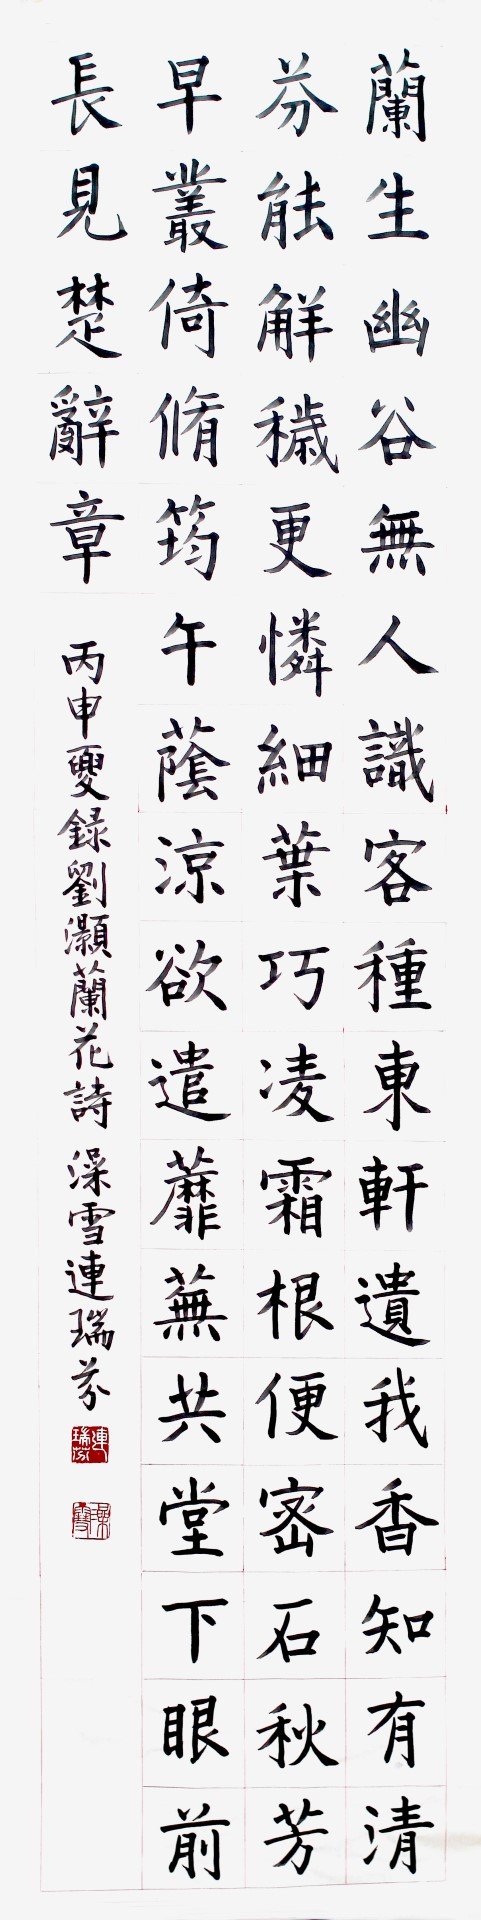 蘭生幽谷無人識客種東軒遺我香知有清
芬能解穢更憐細葉巧凌霜根便密石秋芳
早叢倚脩筠午蔭涼欲遣蘼蕪共堂下眼前
長見楚辭章
丙申夏錄劉灝蘭花詩 澡雪連瑞芬
連瑞芬
澡雪